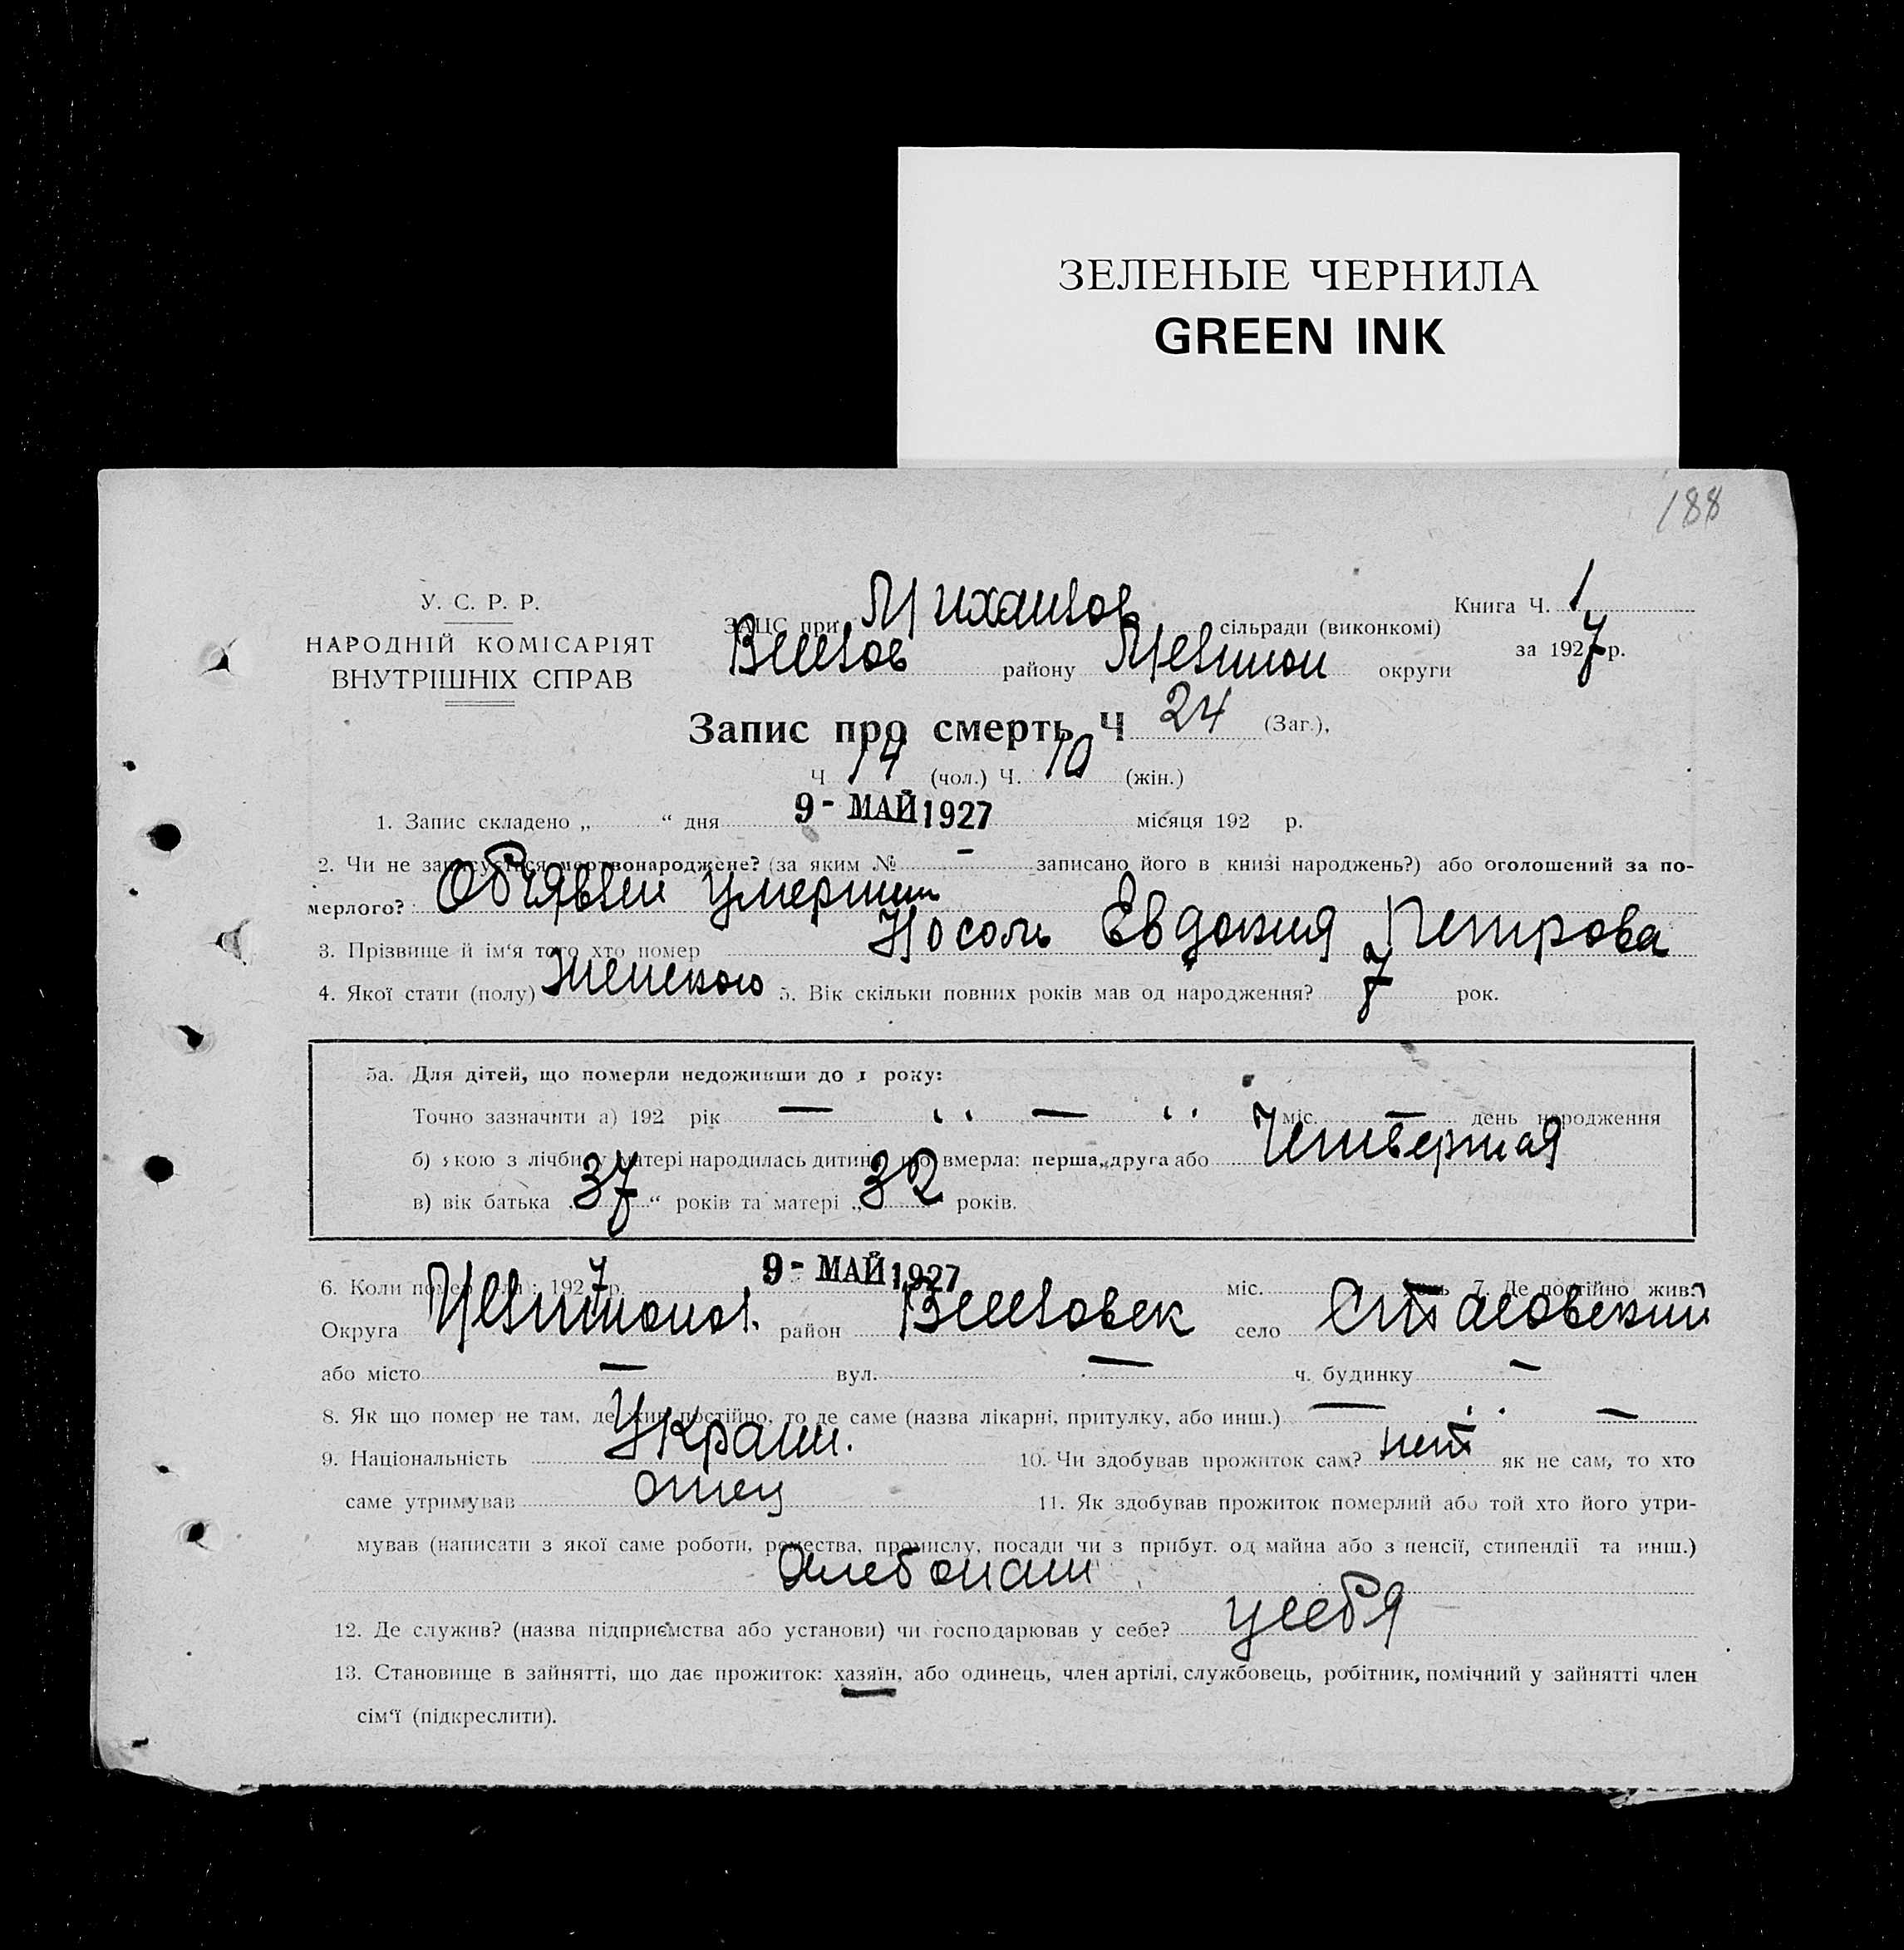 ЗЕЛЕНЫЕ ЧЕРНИЛА
GREEN INK
188
У. С. Р. Р.
НАРОДНІЙ КОМІСАРІЯТ
ВНУТРІШНІХ СПРАВ
Книга Ч. 1
за 1927 р.
ЗАЦС при Михайлов сільради (виконкомі)
району округи
Запис про смерть Ч 24 (Заг.),
Ч 14 (чол.) Ч. 10 (жін.)
1. Запис складено „ “ дня 9 - МАЙ 1927 місяця 192 р.
2. Чи не записується мертвонароджене? (за яким № - записано його в книзі народжень?) або оголошений за по-
мерлого?
3. Прізвище й ім‘я того хто помер Носоль Евдокия Петрова
4. Якої стати (полу) Женского 5. Вік скільки повних років мав од народження? 7 рок.
5а. Для дітей, що померли недоживши до 1 року:
Точно зазначити а) 192 рік — „ — „ міс. — день народження
б) якою з лічби у матері народилась дитина, що вмерла: перша, друга або Четвертая
в) вік батька „37“ років та матері „32 років.
6. Коли помер 1927 р. 9 - МАЙ 1927 міс. день 7. Де постійно жив:
Округа район село
або місто — вул. — ч. будинку —
8. Як що помер не там, де жив постійно, то де саме (назва лікарні, притулку, або инш.) — „ —
9. Національність Украин. 10. Чи здобував прожиток сам? нет як не сам, то хто
саме утримував отец 11. Як здобував прожиток померлий або той хто його утри-
мував (написати з якої саме роботи, ремества, промислу, посади чи з прибут. од майна або з пенсії, стипендії та инш.)
12. Де служив? (назва підприємства або установи) чи господарював у себе? у себя
13. Становище в зайнятті, що дає прожиток: хазяїн, або одинець, член артілі, службовець, робітник, помічний у зайнятті член
сім‘ї (підкреслити).